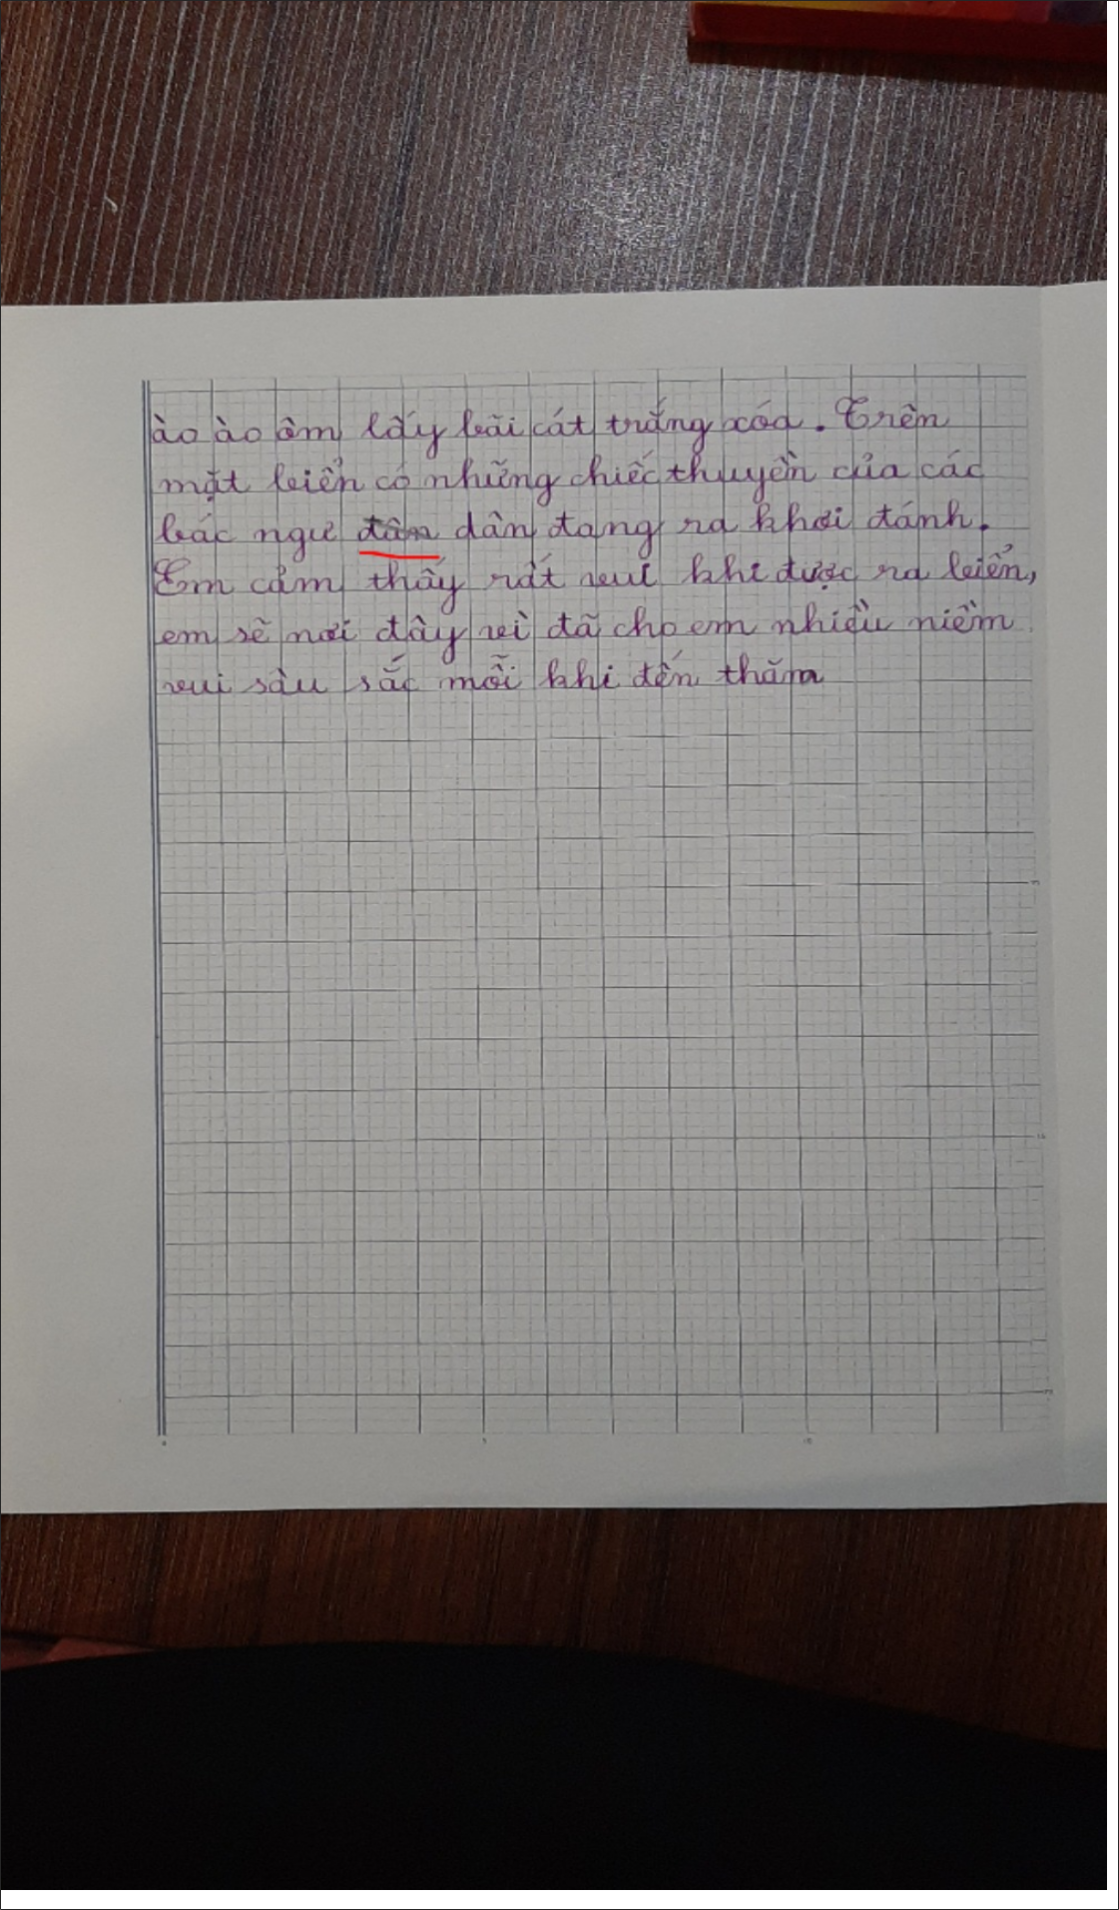 ào ào ôm lấy bãi cát trắng xóa. Trên
mặt biển có những chiếc thuyền của các
bác ngư đân dân đang ra khơi đánh.
Em cảm thấy rất vui khi được ra biển,
em sẽ nơi đây vì đã cho em nhiều niềm
vui sâu sắc mỗi khi đến thăm